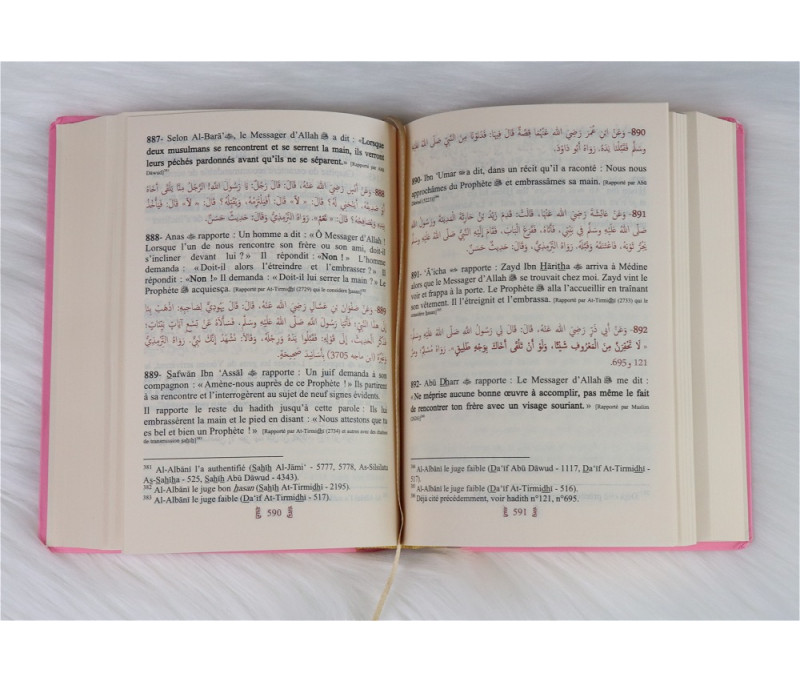 887- Selon Al-Barâ’ ﷺ, le Messager d’Allah ﷺ a dit : «Lorsque
deux musulmans se rencontrent et se serrent la main, ils verront
leurs péchés pardonnés avant qu’ils ne se séparent.» [Rapporté par Abû
Dâwud]
888- وَعَنْ أَنَسٍ رَضِيَ اللَّه عَنْهُ، قَالَ: قَالَ رَجُلٌ: يَا رَسُولَ اللَّه! الرَّجُلُ مِنَّا يَلْقَى أَخَاهُ
أَوْ صَدِيقَهُ، أَيَنْحَنِي لَهُ؟ قَالَ: «لَا» قَالَ: أَفَيَلْتَزِمُهُ، وَيُقَبِّلُهُ؟ قَالَ: «لَا» قَالَ: فَيَأْخُذُ
بِيَدِهِ وَيُصَافِحُهُ؟ قَالَ: «نَعَمْ». رَوَاهُ التِّرْمِذِيُّ وَقَالَ: حَدِيثٌ حَسَنٌ.
888- Anas rapporte : Un homme a dit : « Ô Messager d’Allah !
Lorsque l’un de nous rencontre son frère ou son ami, doit-il
s’incliner devant lui ? » Il répondit : «Non ! » L’homme
demanda : «Doit-il alors l’étreindre et l’embrasser ? » Il
répondit : «Non ! » Il demanda : «Doit-il lui serrer la main ? » Le
Prophète ﷺ acquiesça. [Rapporté par At-Tirmidhî (2729) qui le considère hasan]
889- وَعَنْ صَفْوَانَ بْنِ عَسَّالٍ رَضِيَ اللَّه عَنْهُ، قَالَ: قَالَ يَهُودِيٌّ لِصَاحِبِهِ: اذْهَبْ بِنَا
إِلَى هَذَا النَّبِيِّ، فَأَتَيَا رَسُولَ اللَّه صَلَّى اللَّه عَلَيْهِ وَسَلَّمَ، فَسَأَلَاهُ عَنْ تِسْعِ آيَاتٍ بَيِّنَاتٍ؛
فَذَكَرَ الْحَدِيثَ، إِلَى قَوْلِهِ: فَقَبَّلُوا يَدَهُ وَرِجْلَهُ، وَقَالَا: نَشْهَدُ إِنَّكَ نَبِيٌّ. رَوَاهُ التِّرْمِذِيُّ
(ابن ماجه 3705) بِأَسَانِيدَ صَحِيحَةٍ.
889- Safwân Ibn ‘Assâl rapporte : Un juif demanda à son
compagnon : «Amène-nous auprès de ce Prophète ! » Ils partirent
à sa rencontre et l’interrogèrent au sujet de neuf signes évidents.
Il rapporte le reste du hadith jusqu’à cette parole : Ils lui
embrassèrent la main et le pied en disant : «Nous attestons que tu
es bel et bien un Prophète ! » [Rapporté par At-Tirmidhî (2734) et autres avec des chaînes
de transmission sahîh]
381 Al-Albânî l’a authentifié (Sahîh Al-Jâmi‘ - 5777, 5778, As-Silsilata
As-Sahîha - 525, Sahîh Abû Dâwud - 4343).
382 Al-Albânî le juge bon hasan (Sahîh At-Tirmidhî - 2195).
383 Al-Albânî le juge faible (Da‘îf At-Tirmidhî - 517).
590
890- وَعَنِ ابْنِ عُمَرَ رَضِيَ اللَّه عَنْهُمَا قِصَّةٌ قَالَ فِيهَا: فَدَنَوْنَا مِنَ النَّبِيِّ صَلَّى اللَّه عَلَيْهِ
وَسَلَّمَ فَقَبَّلْنَا يَدَهُ. رَوَاهُ أَبُو دَاوُدَ.
890- Ibn ‘Umar a dit, dans un récit qu’il a raconté : Nous nous
approchâmes du Prophète ﷺ et embrassâmes sa main. [Rapporté par Abû
Dâwud (5223)]
891- وَعَنْ عَائِشَةَ رَضِيَ اللَّه عَنْهَا، قَالَتْ: قَدِمَ زَيْدُ بْنُ حَارِثَةَ الْمَدِينَةَ وَرَسُولُ اللَّه
صَلَّى اللَّه عَلَيْهِ وَسَلَّمَ فِي بَيْتِي، فَأَتَاهُ، فَقَرَعَ الْبَابَ، فَقَامَ إِلَيْهِ النَّبِيُّ صَلَّى اللَّه عَلَيْهِ وَسَلَّمَ
يَجُرُّ ثَوْبَهُ، فَاعْتَنَقَهُ وَقَبَّلَهُ. رَوَاهُ التِّرْمِذِيُّ، وَقَالَ: حَدِيثٌ حَسَنٌ.
891- ‘Â’icha rapporte : Zayd Ibn Hâritha arriva à Médine
alors que le Messager d’Allah ﷺ se trouvait chez moi. Zayd vint
le voir et frappa à la porte. Le Prophète ﷺ alla l’accueillir en traînant
son vêtement. Il l’étreignit et l’embrassa. [Rapporté par At-Tirmidhî (2733) qui le
considère hasan]
892- وَعَنْ أَبِي ذَرٍّ رَضِيَ اللَّه عَنْهُ، قَالَ: قَالَ لِي رَسُولُ اللَّه صَلَّى اللَّه عَلَيْهِ وَسَلَّمَ:
«لَا تَحْقِرَنَّ مِنَ الْمَعْرُوفِ شَيْئًا، وَلَوْ أَنْ تَلْقَى أَخَاكَ بِوَجْهٍ طَلِيقٍ». رَوَاهُ مُسْلِمٌ
121 و695.
892- Abû Dharr rapporte : Le Messager d’Allah ﷺ me dit :
« Ne méprise aucune bonne œuvre à accomplir, pas même le fait
de rencontrer ton frère avec un visage souriant. » [Rapporté par Muslim
(2626)]
Al-Albânî le juge faible (Da‘îf Abû Dâwud - 1117, Da‘îf At-Tirmidhî -
517).
Al-Albânî le juge faible (Da‘îf At-Tirmidhî - 516).
Déjà cité précédemment, voir hadith n°121, n°695.
591